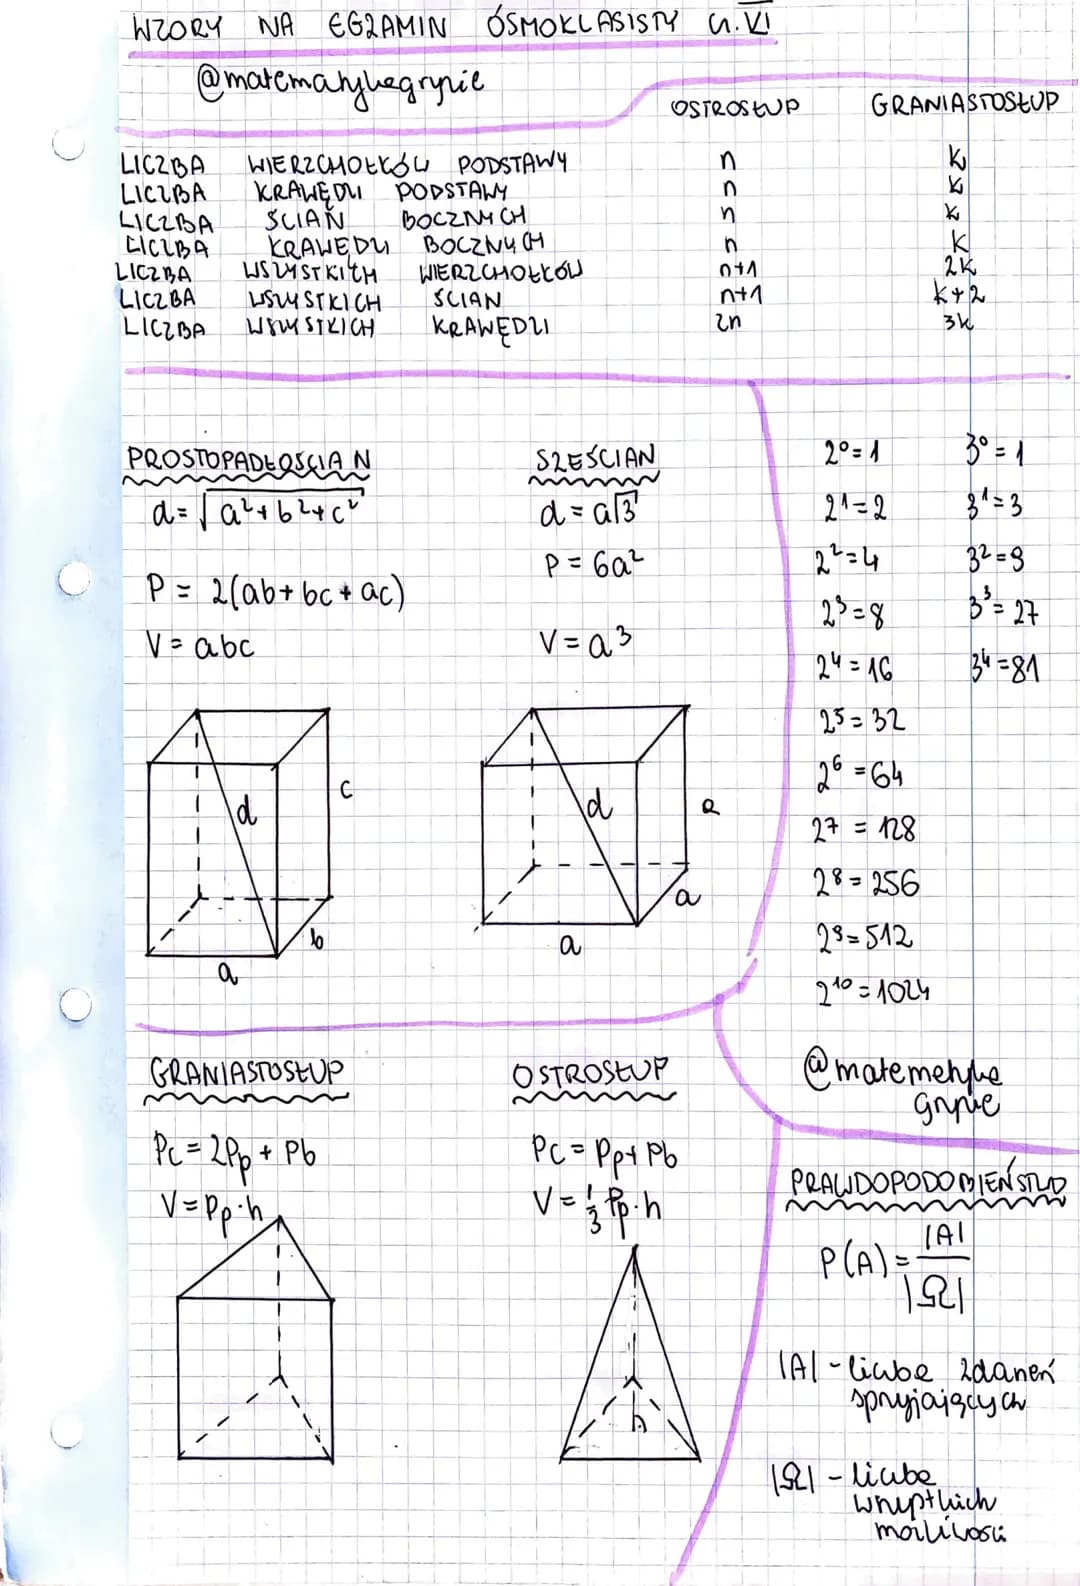 WZORY NA EGZAMIN ÓSMOKLASISTY cz. VI
@matematykagryzie
OSTROSŁUP GRANIASTOSŁUP
LICZBA WIERZCHOŁKÓW PODSTAWY n k
LICZBA KRAWĘDZI PODSTAWY n k
LICZBA ŚCIAN BOCZNYCH n k
LICZBA KRAWĘDZI BOCZNYCH n k
LICZBA WSZYSTKICH WIERZCHOŁKÓW n+1 2k
LICZBA WSZYSTKICH ŚCIAN n+1 k+2
LICZBA WSZYSTKICH KRAWĘDZI 2n 3k
PROSTOPADŁOŚCIAN
d = √(a²+b²+c²)
P = 2(ab+bc+ac)
V = abc
d
c
b
a
SZEŚCIAN
d = a√3
P = 6a²
V = a³
d
a
a
a
2⁰ = 1 3⁰ = 1
2¹ = 2 3¹ = 3
2² = 4 3² = 9
2³ = 8 3³ = 27
2⁴ = 16 3⁴ = 81
2⁵ = 32
2⁶ = 64
2⁷ = 128
2⁸ = 256
2⁹ = 512
2¹⁰ = 1024
@matematyka
gryzie
GRANIASTOSŁUP
Pc = 2Pp + Pb
V = Pp·h
OSTROSŁUP
Pc = Pp + Pb
V = 1/3 Pp·h
h
PRAWDOPODOBIEŃSTWO
P(A) = |A|/|Ω|
|A| - liczba zdarzeń
sprzyjających
|Ω| - liczba
wszystkich
możliwości